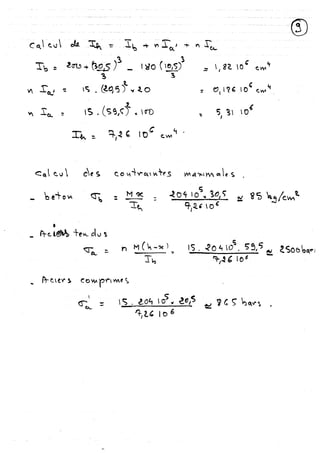 ③
Calcul de Ih = Ib + n Ia' + n Ia
Ib = 200 * (30,5)³/3 - 180 (10,5)³/3 = 1,82 10⁶ cm⁴
n Ia' = 15 . (20,5)² * 20 = 0,126 10⁶ cm⁴
n Ia = 15 . (59,5)² . 100 = 5,31 10⁶
Ih = 7,26 10⁶ cm⁴ .
Calcul des contraintes maximales .
- beton σb = M x / Ih = 204 10⁵ . 30,5 / 7,26 10⁶ ≃ 85 kg/cm²
- Aciers tendus
σa = n M (h-x) / Ih = 15 . 204 10⁵ . 59,5 / 7,26 10⁶ ≃ 2500 bars
- Aciers comprimes
σ'a = 15 . 204 10⁵ . 20,5 / 7,26 10⁶ ≃ 865 bars .